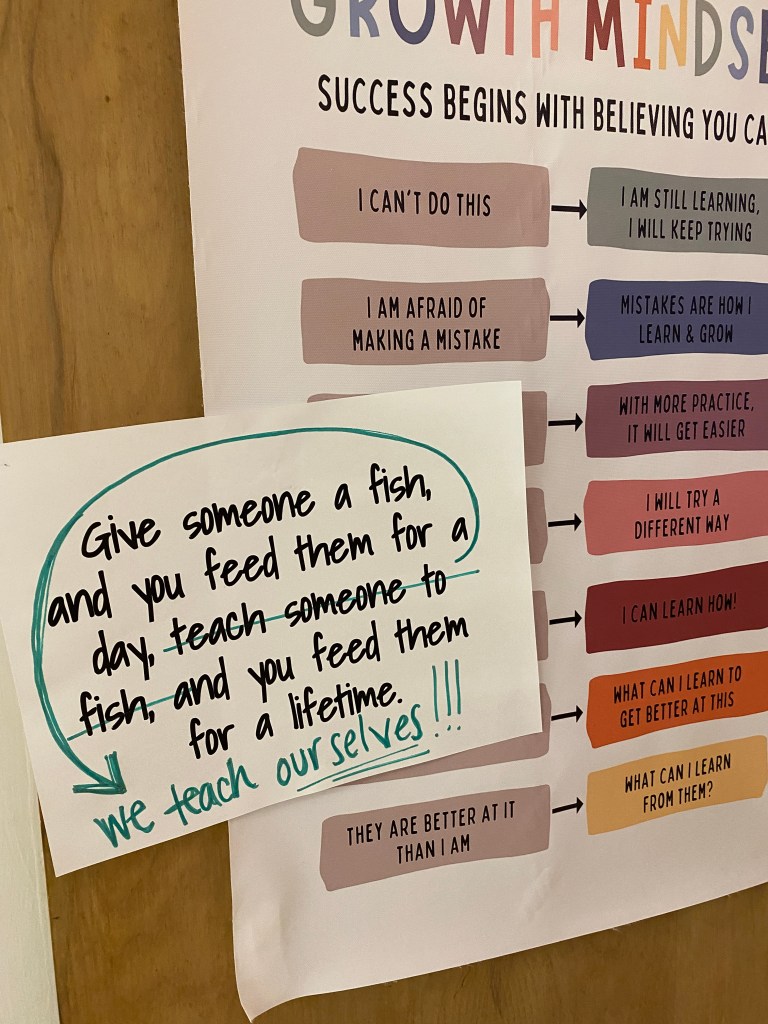 GROWTH MINDSE
SUCCESS BEGINS WITH BELIEVING YOU CA
I CAN'T DO THIS
I AM STILL LEARNING,
I WILL KEEP TRYING
I AM AFRAID OF
MAKING A MISTAKE
MISTAKES ARE HOW I
LEARN & GROW
WITH MORE PRACTICE,
IT WILL GET EASIER
I WILL TRY A
DIFFERENT WAY
I CAN LEARN HOW!
WHAT CAN I LEARN TO
GET BETTER AT THIS
THEY ARE BETTER AT IT
THAN I AM
WHAT CAN I LEARN
FROM THEM?
Give someone a fish,
and you feed them for a
day, teach someone to
fish, and you feed them
for a lifetime.
we teach ourselves!!!